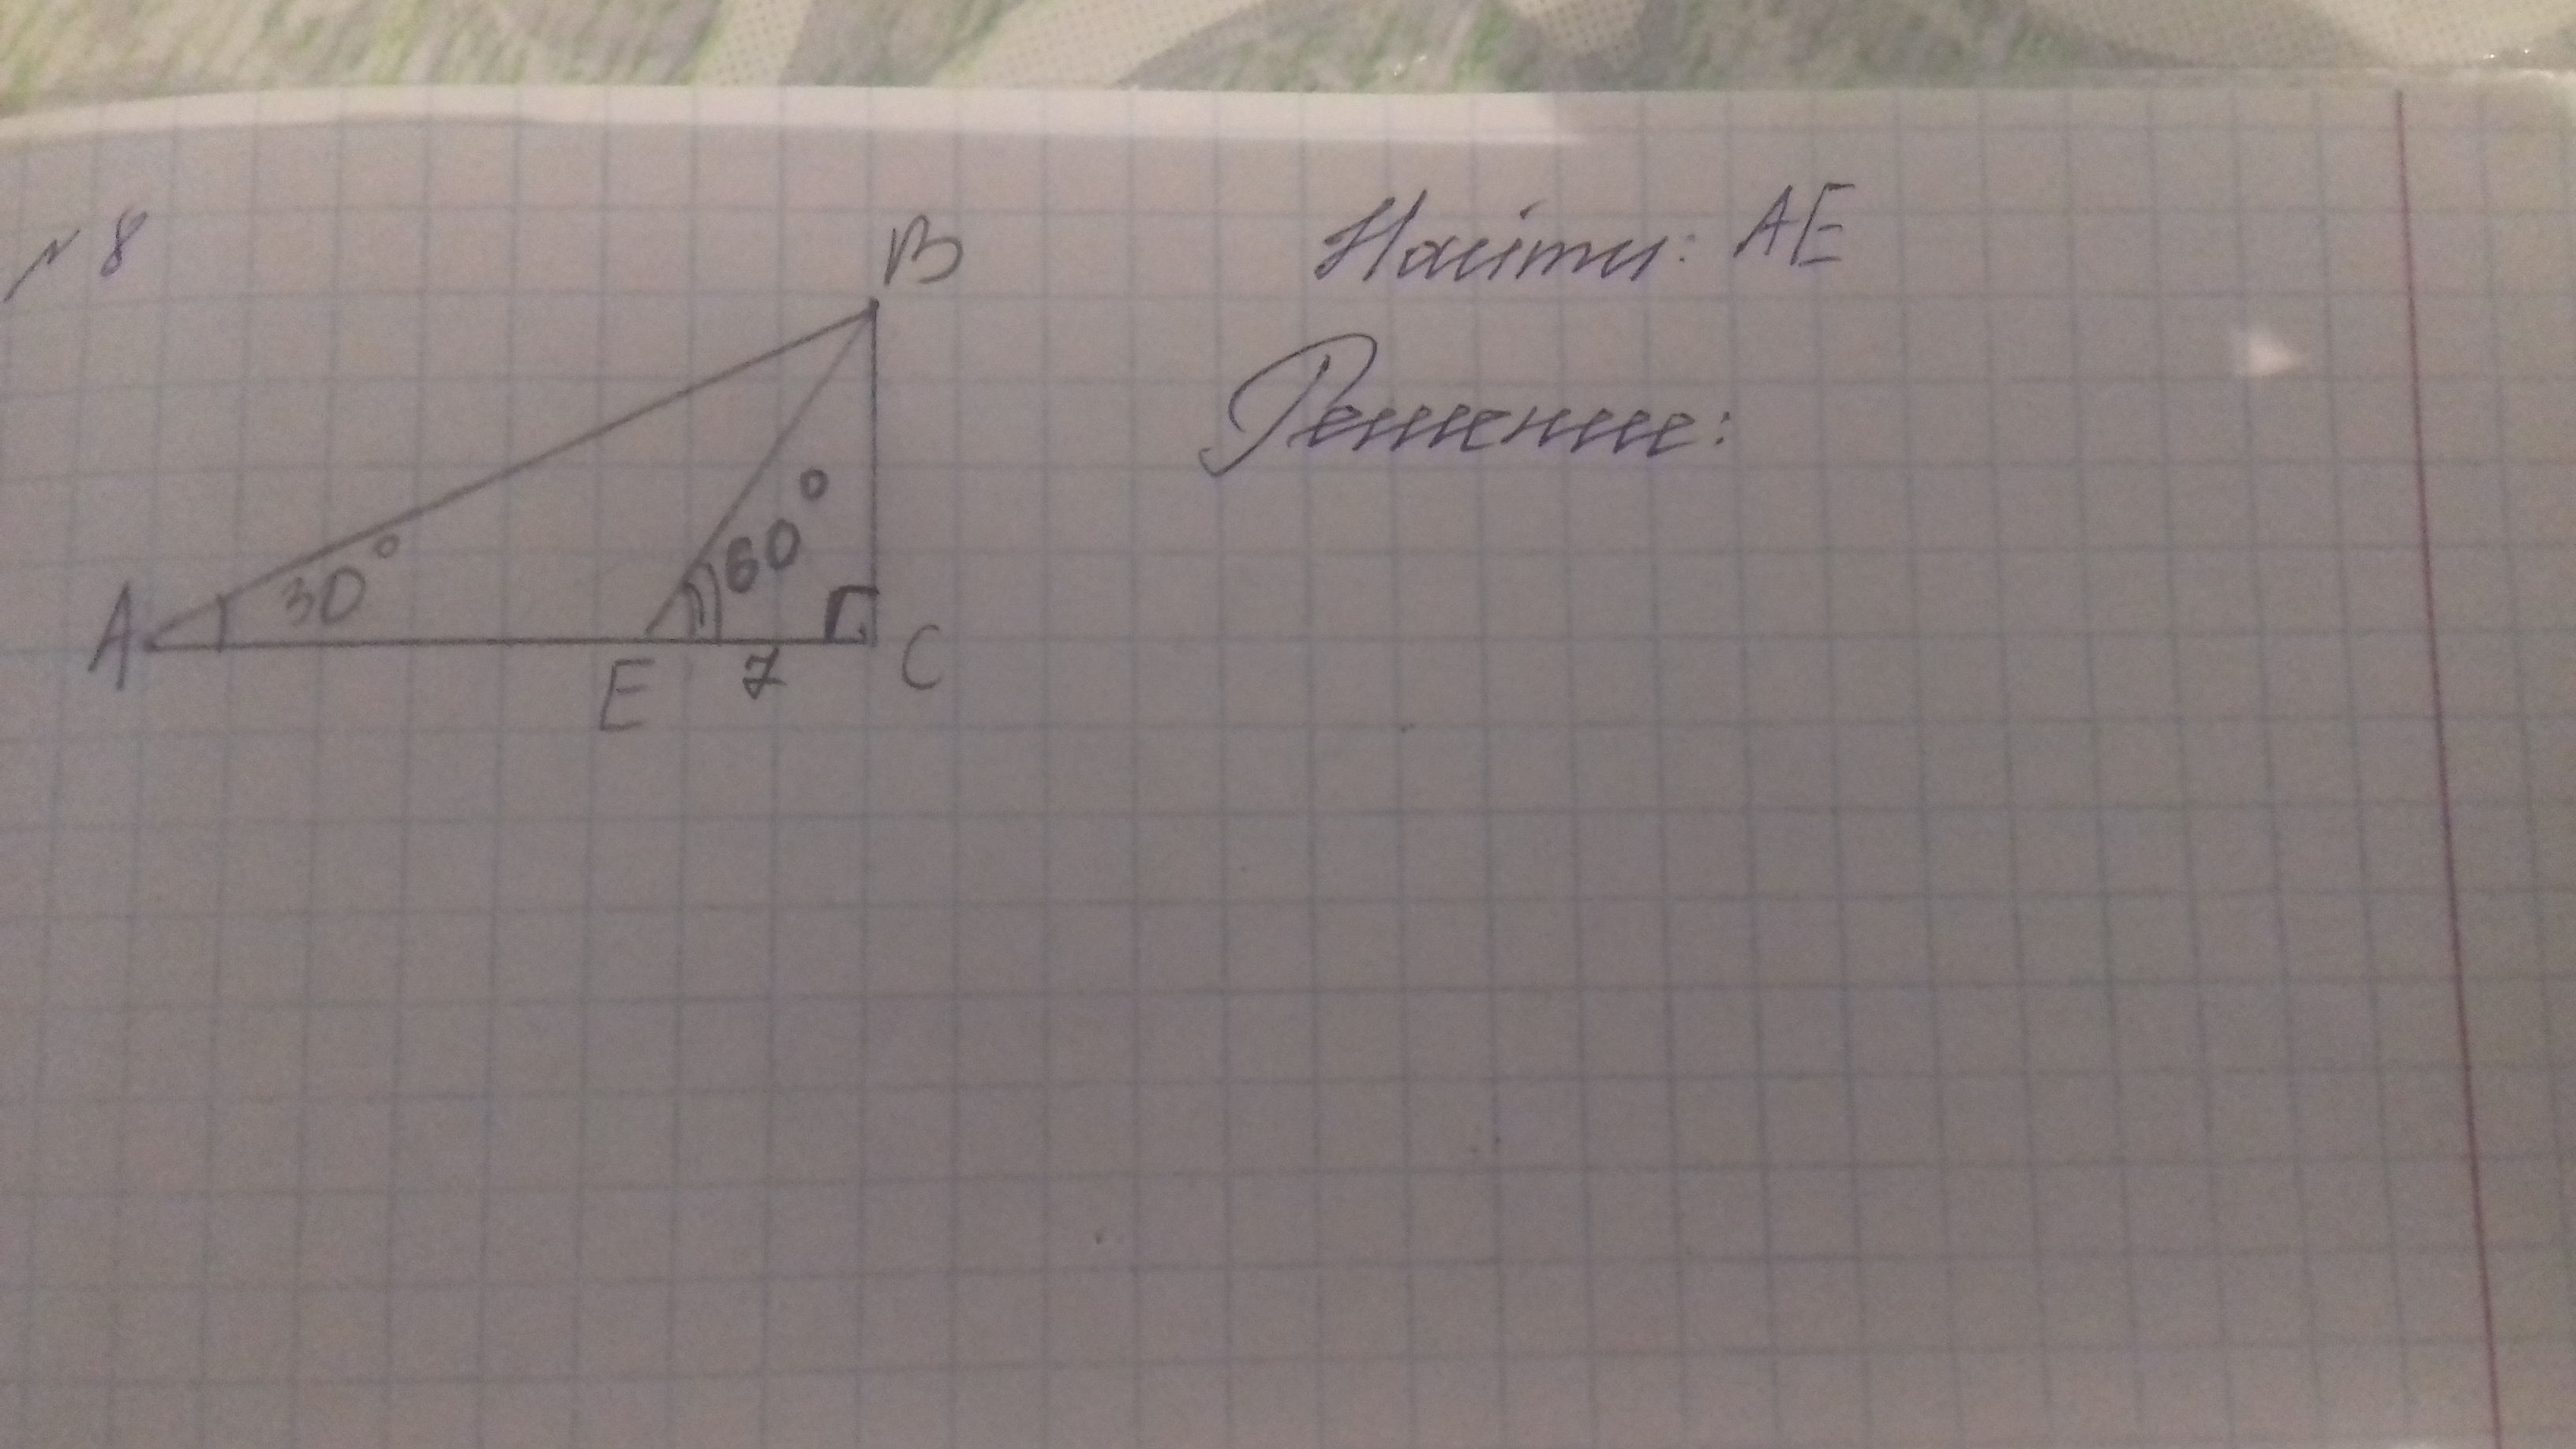 № 8
B
Найти: AE
Решение:
60°
30°
A
E
7
C